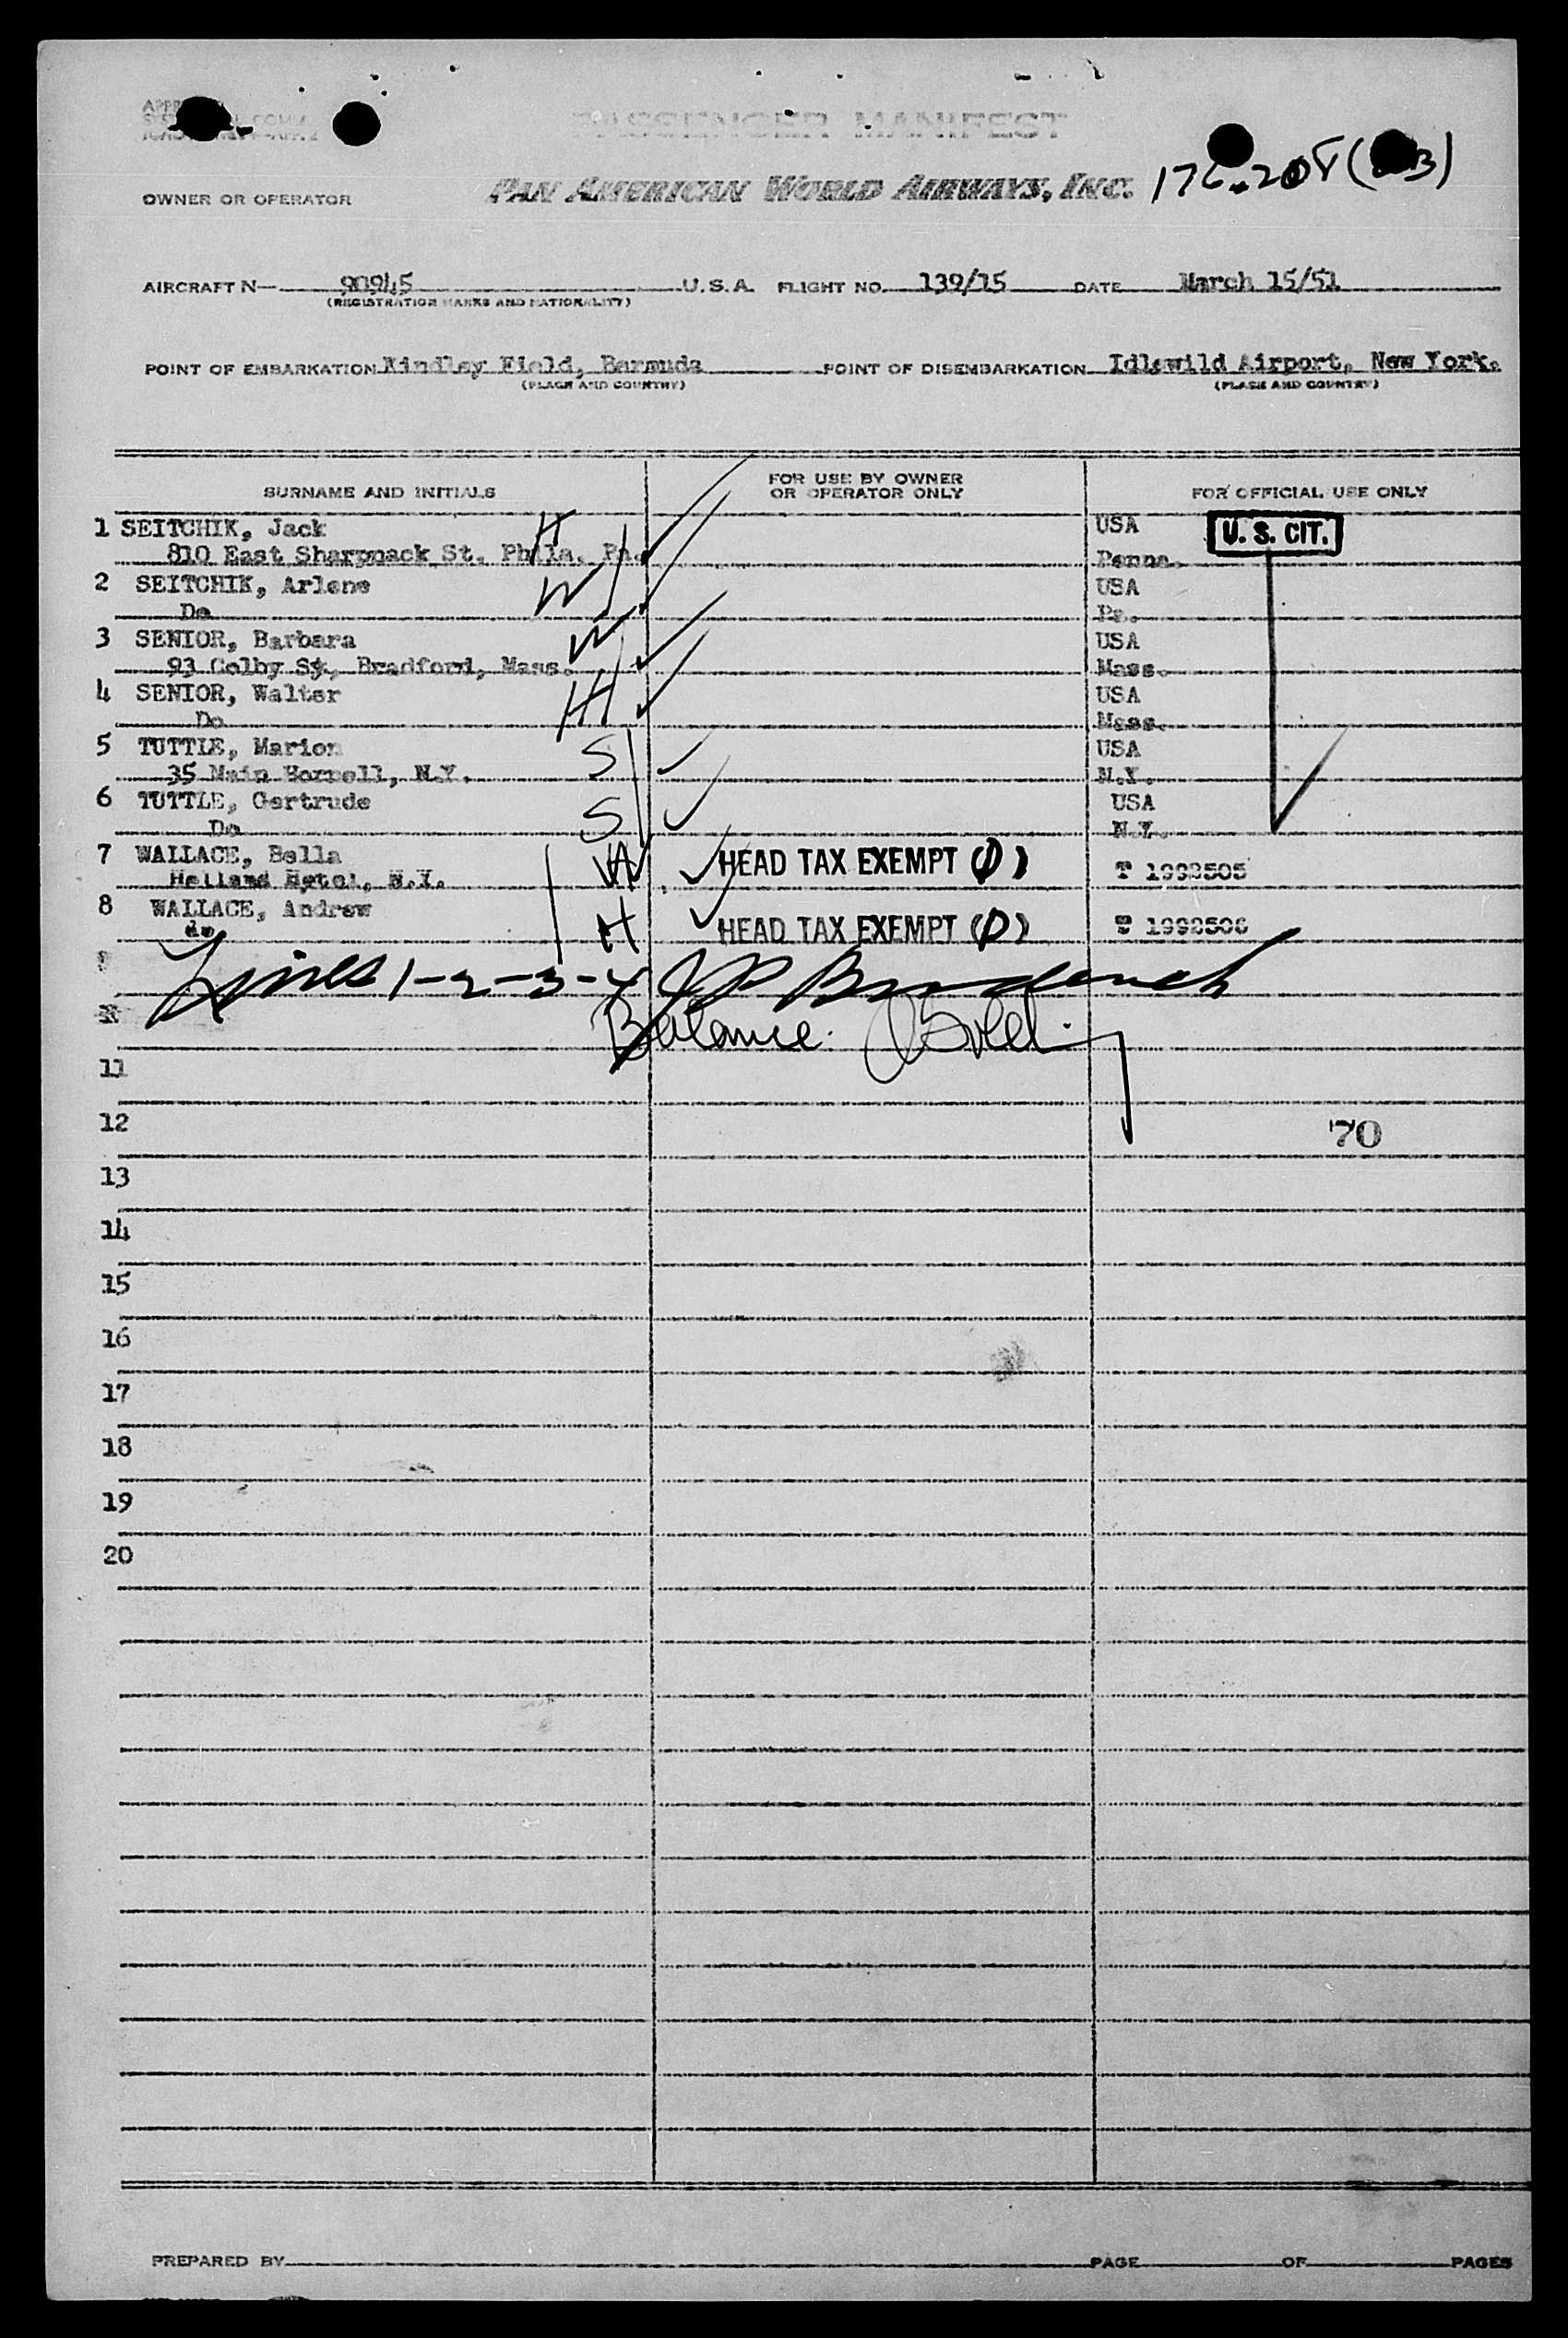 PASSENGER MANIFEST
OWNER OR OPERATOR PAN AMERICAN WORLD AIRWAYS, INC.
AIRCRAFT N— 90945 U.S.A. FLIGHT NO. 139/15 DATE March 15/51
(REGISTRATION MARKS AND NATIONALITY)
POINT OF EMBARKATION Kindley Field, Bermuda POINT OF DISEMBARKATION Idlewild Airport, New York.
(PLACE AND COUNTRY) (PLACE AND COUNTRY)
SURNAME AND INITIALS FOR USE BY OWNER OR OPERATOR ONLY FOR OFFICIAL USE ONLY
1 SEITCHIK, Jack H USA U. S. CIT.
810 East Sharpnack St. Phila. Pa. Penna.
2 SEITCHIK, Arlene W USA
Do Pa.
3 SENIOR, Barbara W USA
93 Colby St, Bradford, Mass. Mass.
4 SENIOR, Walter H USA
Do Mass.
5 TUTTLE, Marion S USA
35 Main Hornell, N.Y. N.Y.
6 TUTTLE, Gertrude S USA
Do N.Y.
7 WALLACE, Bella W HEAD TAX EXEMPT (1) T 1992505
Holland Hotel, N.Y.
8 WALLACE, Andrew H HEAD TAX EXEMPT (1) T 1992506
do
Lines 1-2-3-4
Balance:
11
12 70
13
14
15
16
17
18
19
20
PREPARED BY PAGE OF PAGES